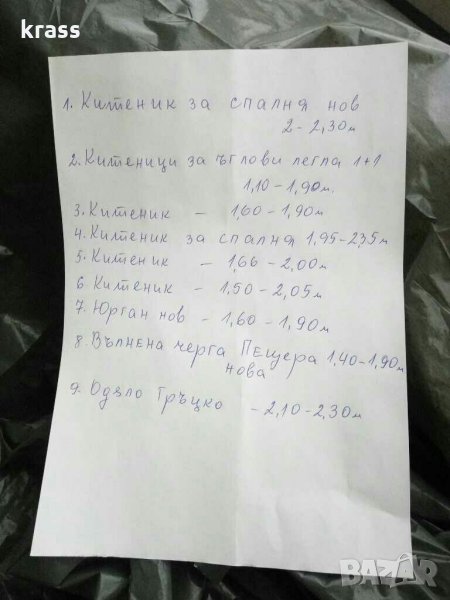 krass
1. Китеник за спалня нов
2 - 2,30м
2. Китеници за ъглови легла 1+1
1,10 - 1,90м.
3. Китеник - 1,60 - 1,90м
4. Китеник за спалня 1,95-235м
5. Китеник - 1,66 - 2,00м
6. Китеник - 1,50 - 2,05м
7. Юрган нов - 1,60 - 1,90м
8. Вълнена черга Пещера 1,40-1,90м
нова
9. Одяло Гръцко - 2,10 - 2,30м
BAZAR